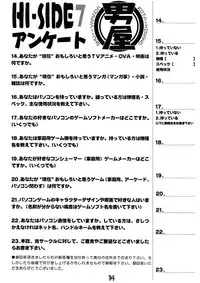 HI-SIDE7
アンケート
男屋
14.あなたが"現在"おもしろいと思うTVアニメ・OVA・映画は
何ですか。
15.あなたが"現在"おもしろいと思うマンガ(マンガ本)・小説・
雑誌は何ですか。
16.あなたはパソコンを持っていますか。持っている方は機種名と
スペック、主な使用状況も教えて下さい。
17.あなたの好きなパソコンのゲームソフトメーカーはどこですか。
(いくつでも)
18.あなたは家庭用ゲーム機を持っていますか。持っている方は機種
名を教えて下さい。(いくつでも)
19.あなたが好きなコンシューマー(家庭用)ゲームメーカーはどこ
ですか。(いくつでも)
20.あなたが"現在"おもしろいと思うゲーム(家庭用、アーケード、
パソコン問わず)は何ですか。
21.パソコンゲームのキャラクターデザインや原画で好きな人はいま
すか。(名前が分からない場合はゲームソフト名を書いて下さい。)
22.あなたはパソコン通信をしていますか。している方は、さしつ
かえなければネット名、ハンドルネームを教えて下さい。
23.本誌、当サークルに対して、ご意見やご要望などありましたら
お書き下さい。
14
14.
15.
16.
1.持っていない
2.持っている
機種名(
スペック(
使用状況
17.
18.
1.持っていない
2.持っている
19.
20.
21.
22.
23.